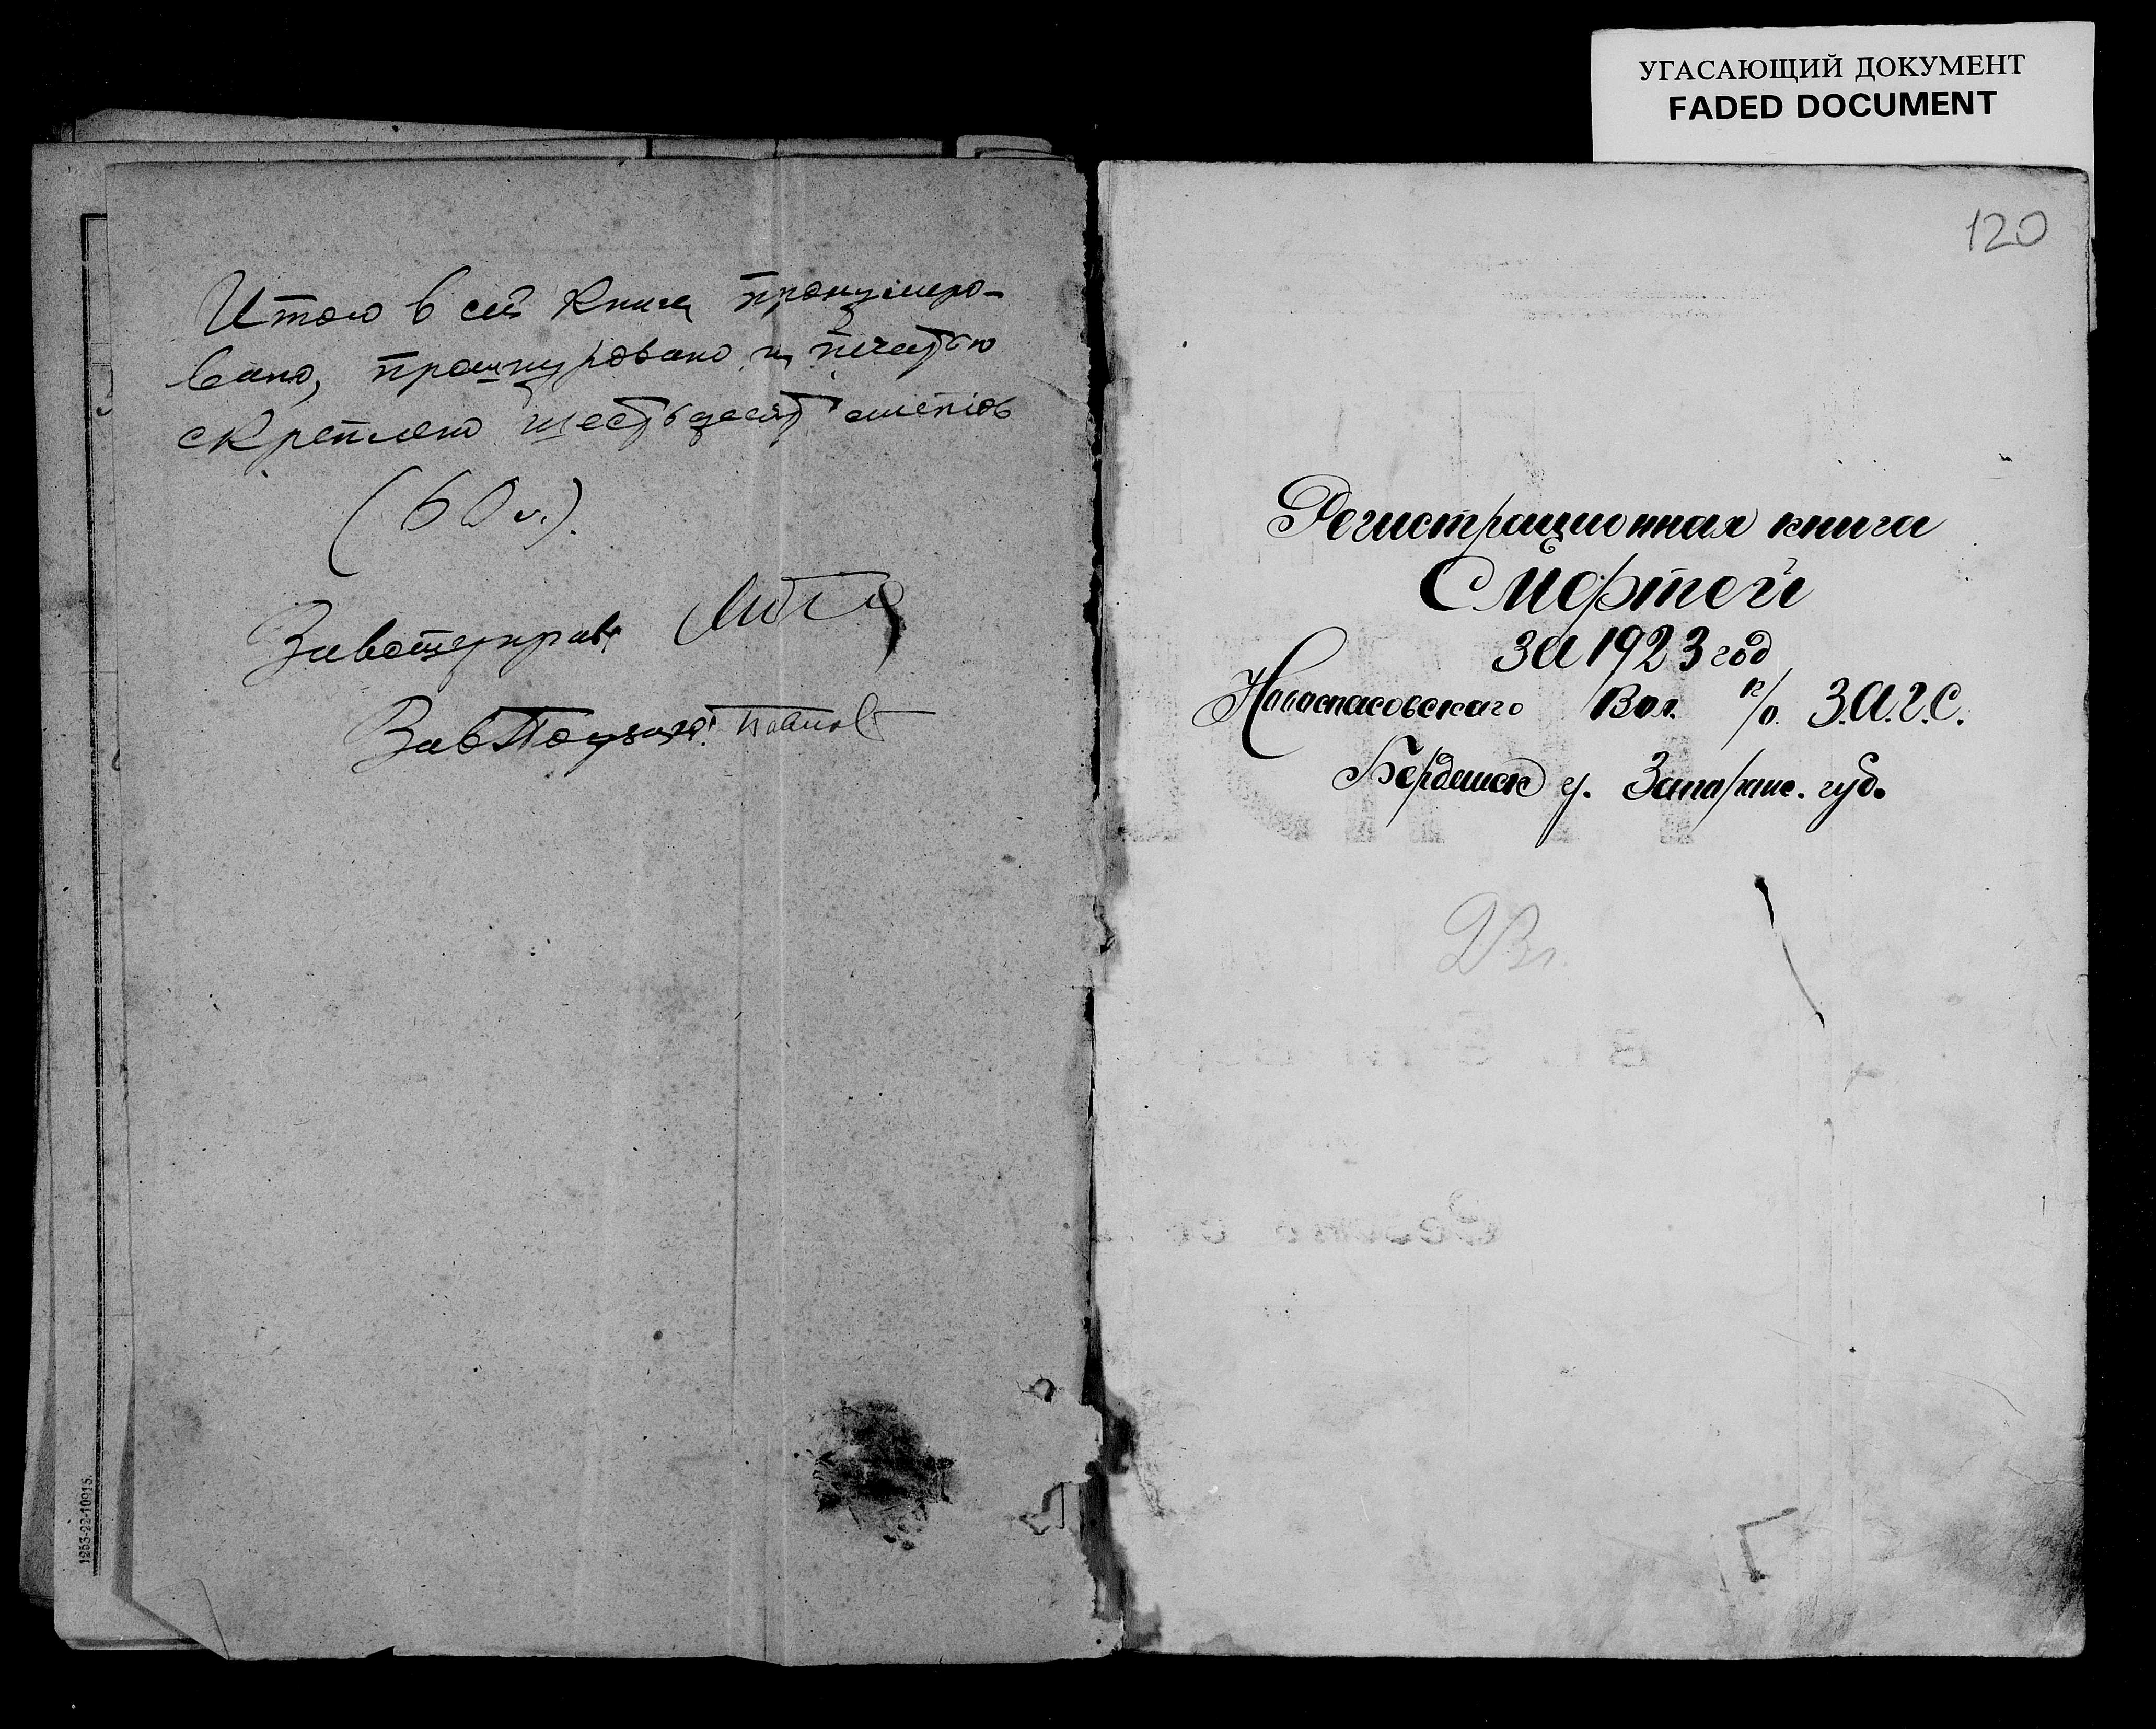 УГАСАЮЩИЙ ДОКУМЕНТ
FADED DOCUMENT
Итого в сей книге пронумеро-
вано, прошнуровано и печатью
скреплено шестьдесят листов
(60 л.).
Завотуправ
Зав
1253-22-10915.
120
Регистрационная книга
Смертей
за 1923 год
Новоспасовского Вол. п/о. З.А.Г.С.
Бердянск у. Запорож. губ.